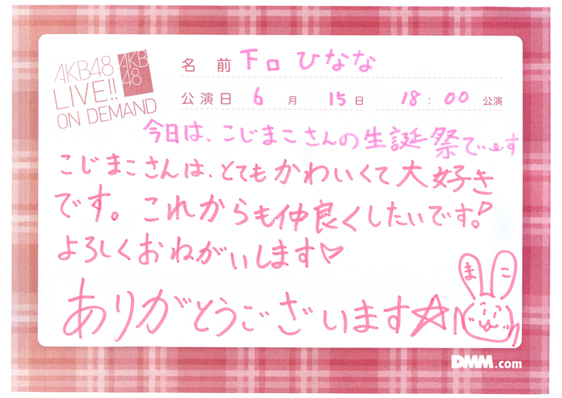 AKB48
LIVE!!
ON DEMAND
AKB
48
名前 下口ひなな
公演日 6月 15日 18:00 公演
今日は、こじまこさんの生誕祭でーす
こじまこさんは、とてもかわいくて大好き
です。これからも仲良くしたいです。
よろしくおねがいします♡
ありがとうございます☆
まこ
DMM.com